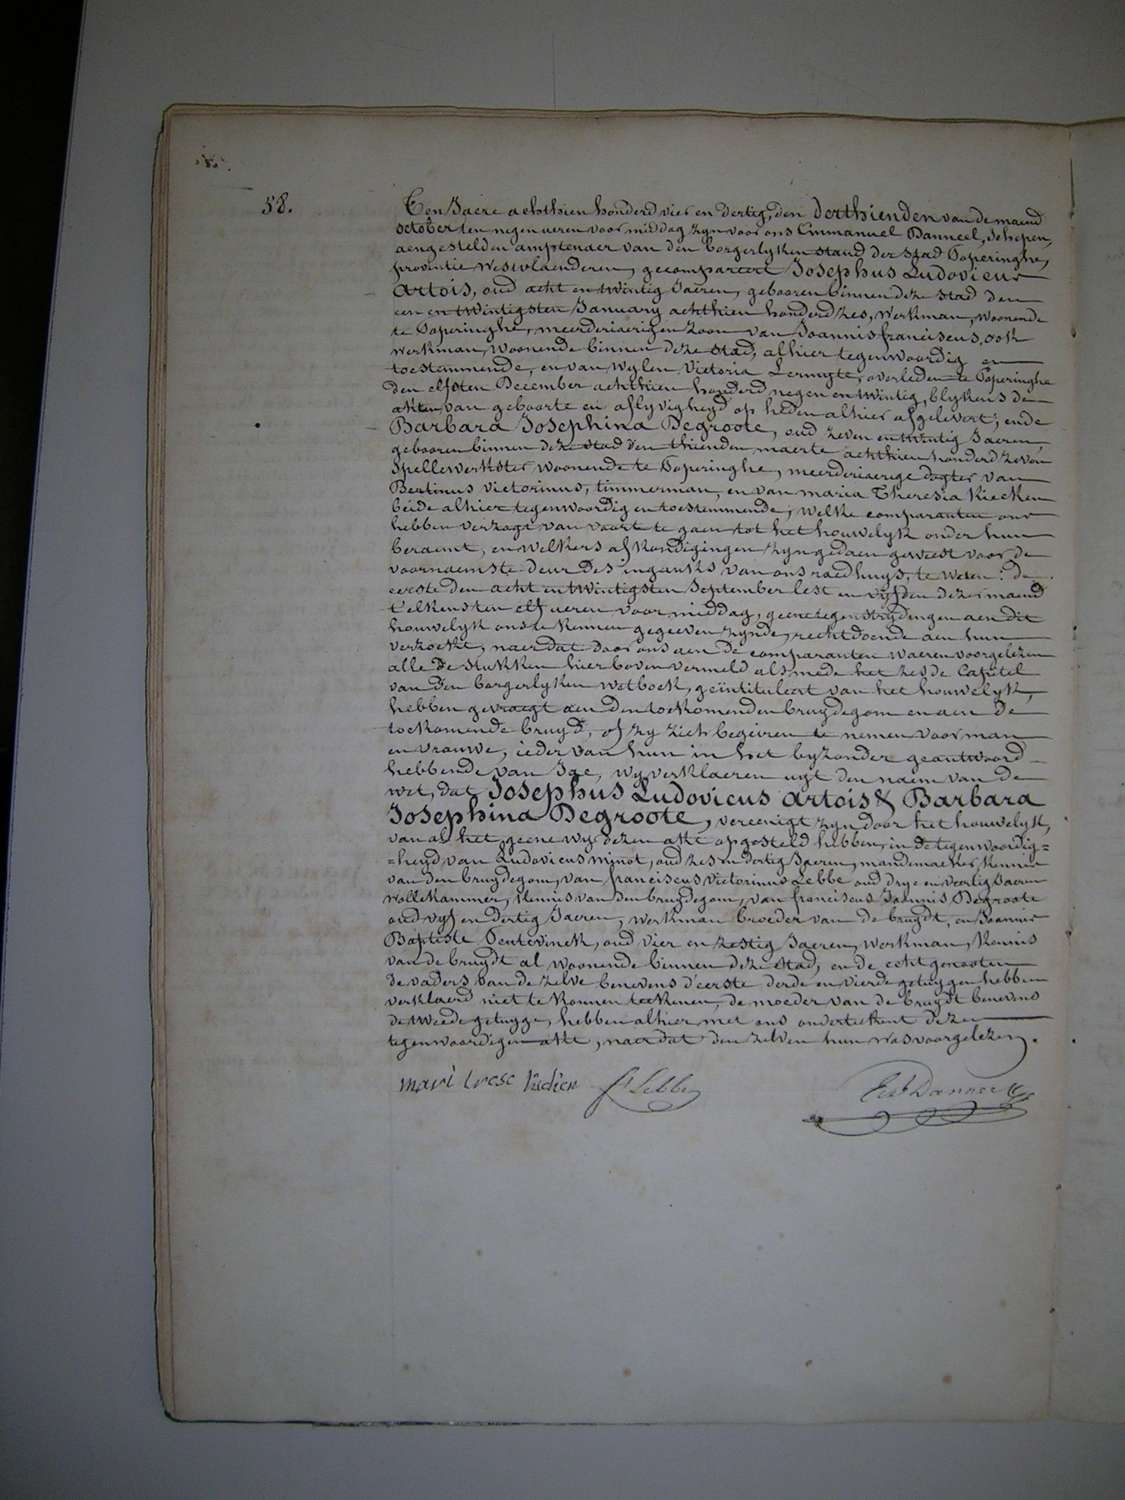 58.
Ten Jaere achthien honderd vier en dertig, den derthienden van de maend
october ten negen ueren voor middag zyn voor ons Emmanuel Danneel, Schepen,
aengestelden amptenaer van den borgerlyken stand der stad Poperinghe,
provintie Westvlaenderen, gecompareert Josephus Ludovicus
Artois, oud acht en twintig Jaeren, gebooren binnen deze stad den
een en twintigsten January achthien honderd zes, werkman, woonende
te Poperinghe, meerderjaerigen zoon van Joannis franciscus, ook
werkman, woonende binnen deze stad, alhier tegenwoordig en
toestemmende, en van wylen Victoria Leruyte, overleden te Poperinghe
den elfsten December achthien honderd negen en twintig, blykens de
akten van geboorte en aflyvigheyd op heden alhier afgelevert; ende
Barbara Josephina Degroote, oud zeven en twintig Jaeren,
gebooren binnen deze stad den thienden maerte achthien honderd zeven
Spellewerkster woonende te Poperinghe, meerderjaerige dogter van
Bertinus victorinus, timmerman, en van maria Theresia Kiecken
beide alhier tegenwoordig en toestemmende, welke comparanten ons
hebben verzogt van voort te gaen tot het houwelyk onder hun
beraemt, en welkers afkondigingen zyn gedaen geweest voor de
voornaemste deur des ingangs van ons raedhuys, te weten: de
eerste den acht en twintigsten September lest en vyfden dezer maend
t'elkens ten elf ueren voor middag, geene tegenstrydingen aen dit
houwelyk ons te kennen gegeeven zynde, rechtdoende aen hun
verzoekt, naer dat door ons aen de comparanten waeren voorgelezen
alle de stukken hier boven vermeld als mede het zesde Capitel
van den borgerlyken wetboek, geïntituleert van het houwelyk,
hebben gevraegt aen den toekomenden bruydegom en aen de
toekomende bruyd, of zy zich begeiren te nemen voor man
en vrouwe, ieder van hun in het byzonder geantwoord
hebbende van Jae, wy verklaeren uyt den naem van de
wet, dat Josephus Ludovicus Artois & Barbara
Josephina Degroote, vereenigt zyn door het houwelyk,
van al het geene wy dezen akt opgesteld hebben, in de tegenwoordig=
=heyd van Ludovicus minot, oud zes en dertig Jaeren, mandemaeker, kennis
van den bruydegom, van franciscus victorinus Lebbe oud drye en veertig Jaeren
Wollekammer, kennis van den bruydegom, van franciscus Joannis Degroote
oud vyf en dertig Jaeren, werkman broeder van de bruydt, en Joannis
Baptiste Pentevinck, oud vier en zestig Jaeren, Werkman, Kennis
van de bruydt al woonende binnen deze stad, en de echtgenooten
de vaders van de zelve benevens d'eerste derde en vierde getuygen hebben
verklaerd niet te konnen teekenen, de moeder van de bruydt benevens
de tweede getuyge, hebben alhier met ons onderteekent dezen
tegenwoordigen akt, naer dat den zelven hun was voorgelezen.
mari trese kieken
f Lebbe
Danneel